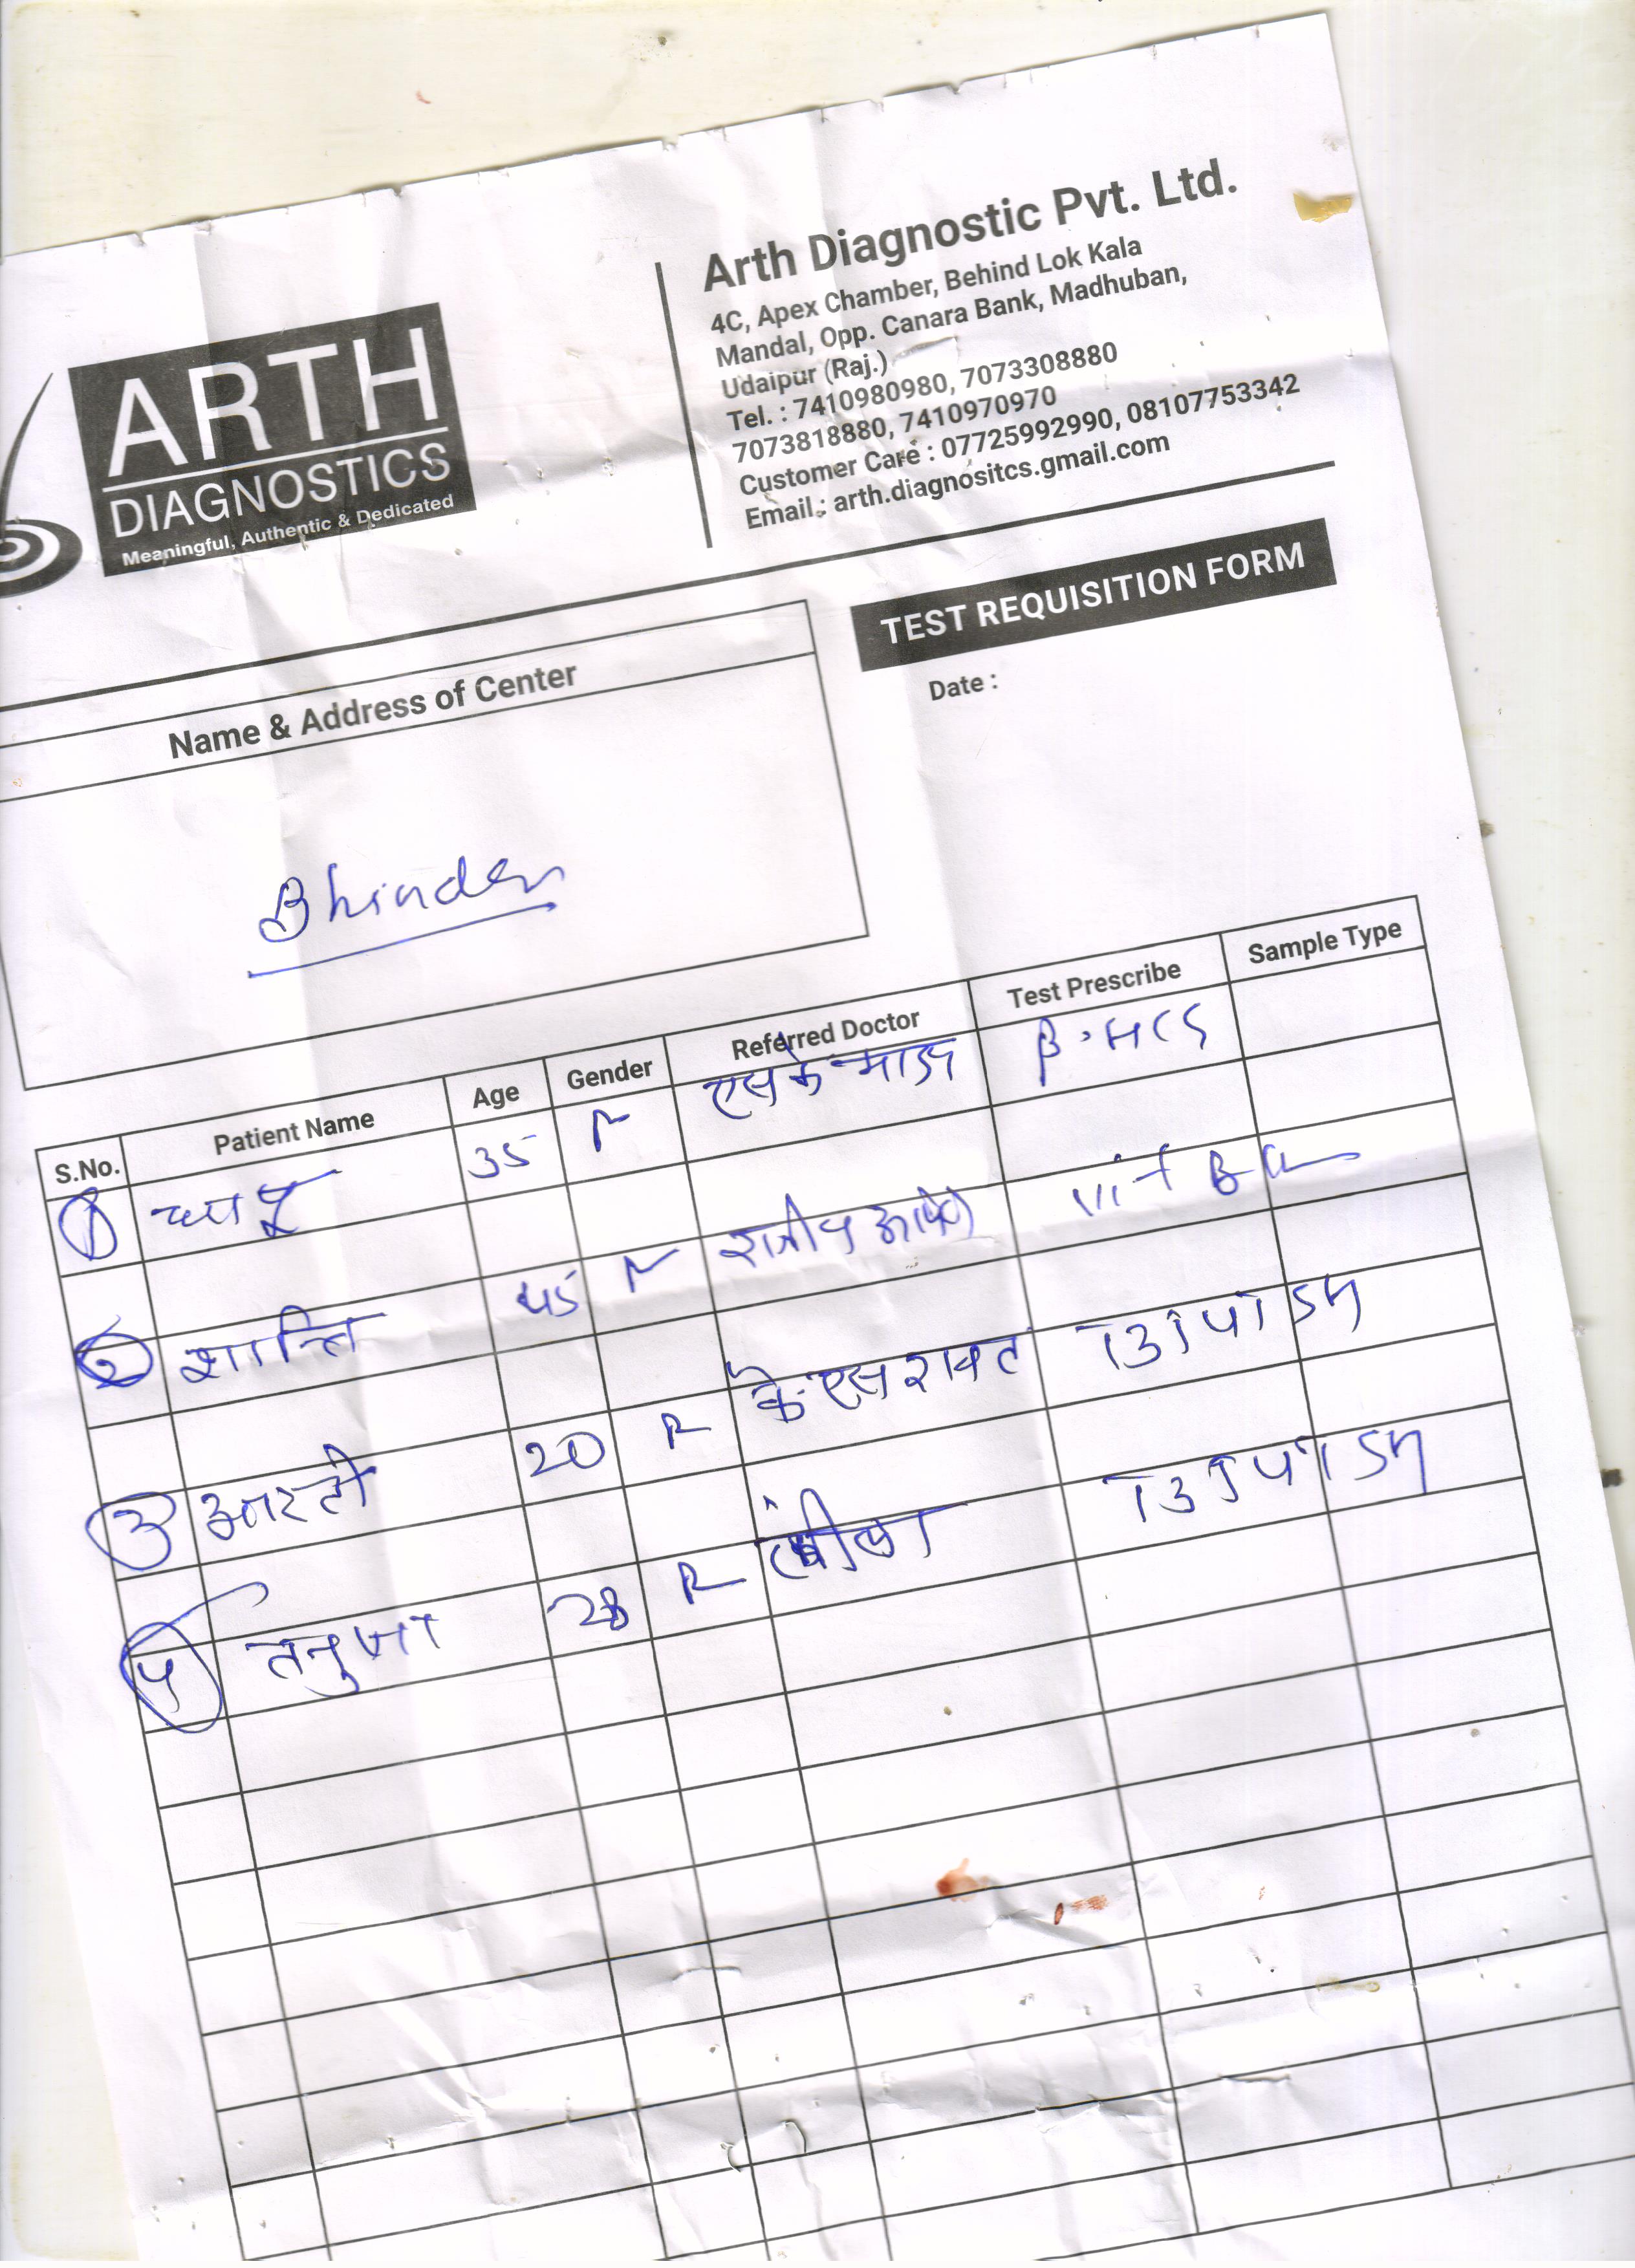 ARTH
DIAGNOSTICS
Meaningful, Authentic & Dedicated
Arth Diagnostic Pvt. Ltd.
4C, Apex Chamber, Behind Lok Kala
Mandal, Opp. Canara Bank, Madhuban,
Udaipur (Raj.)
Tel. : 7410980980, 7073308880
7073818880, 7410970970
Customer Care : 07725992990, 08107753342
Email : arth.diagnositcs.gmail.com
TEST REQUISITION FORM
Date :
Name & Address of Center
Bhinder
S.No. Patient Name Age Gender Referred Doctor Test Prescribe Sample Type
1 35 एस के β.HCG
2 शान्ति 45 Vit B
3 आरती 20 के एस रावत T3 T4 TSH
4 तनुजा 28 T3 T4 TSH